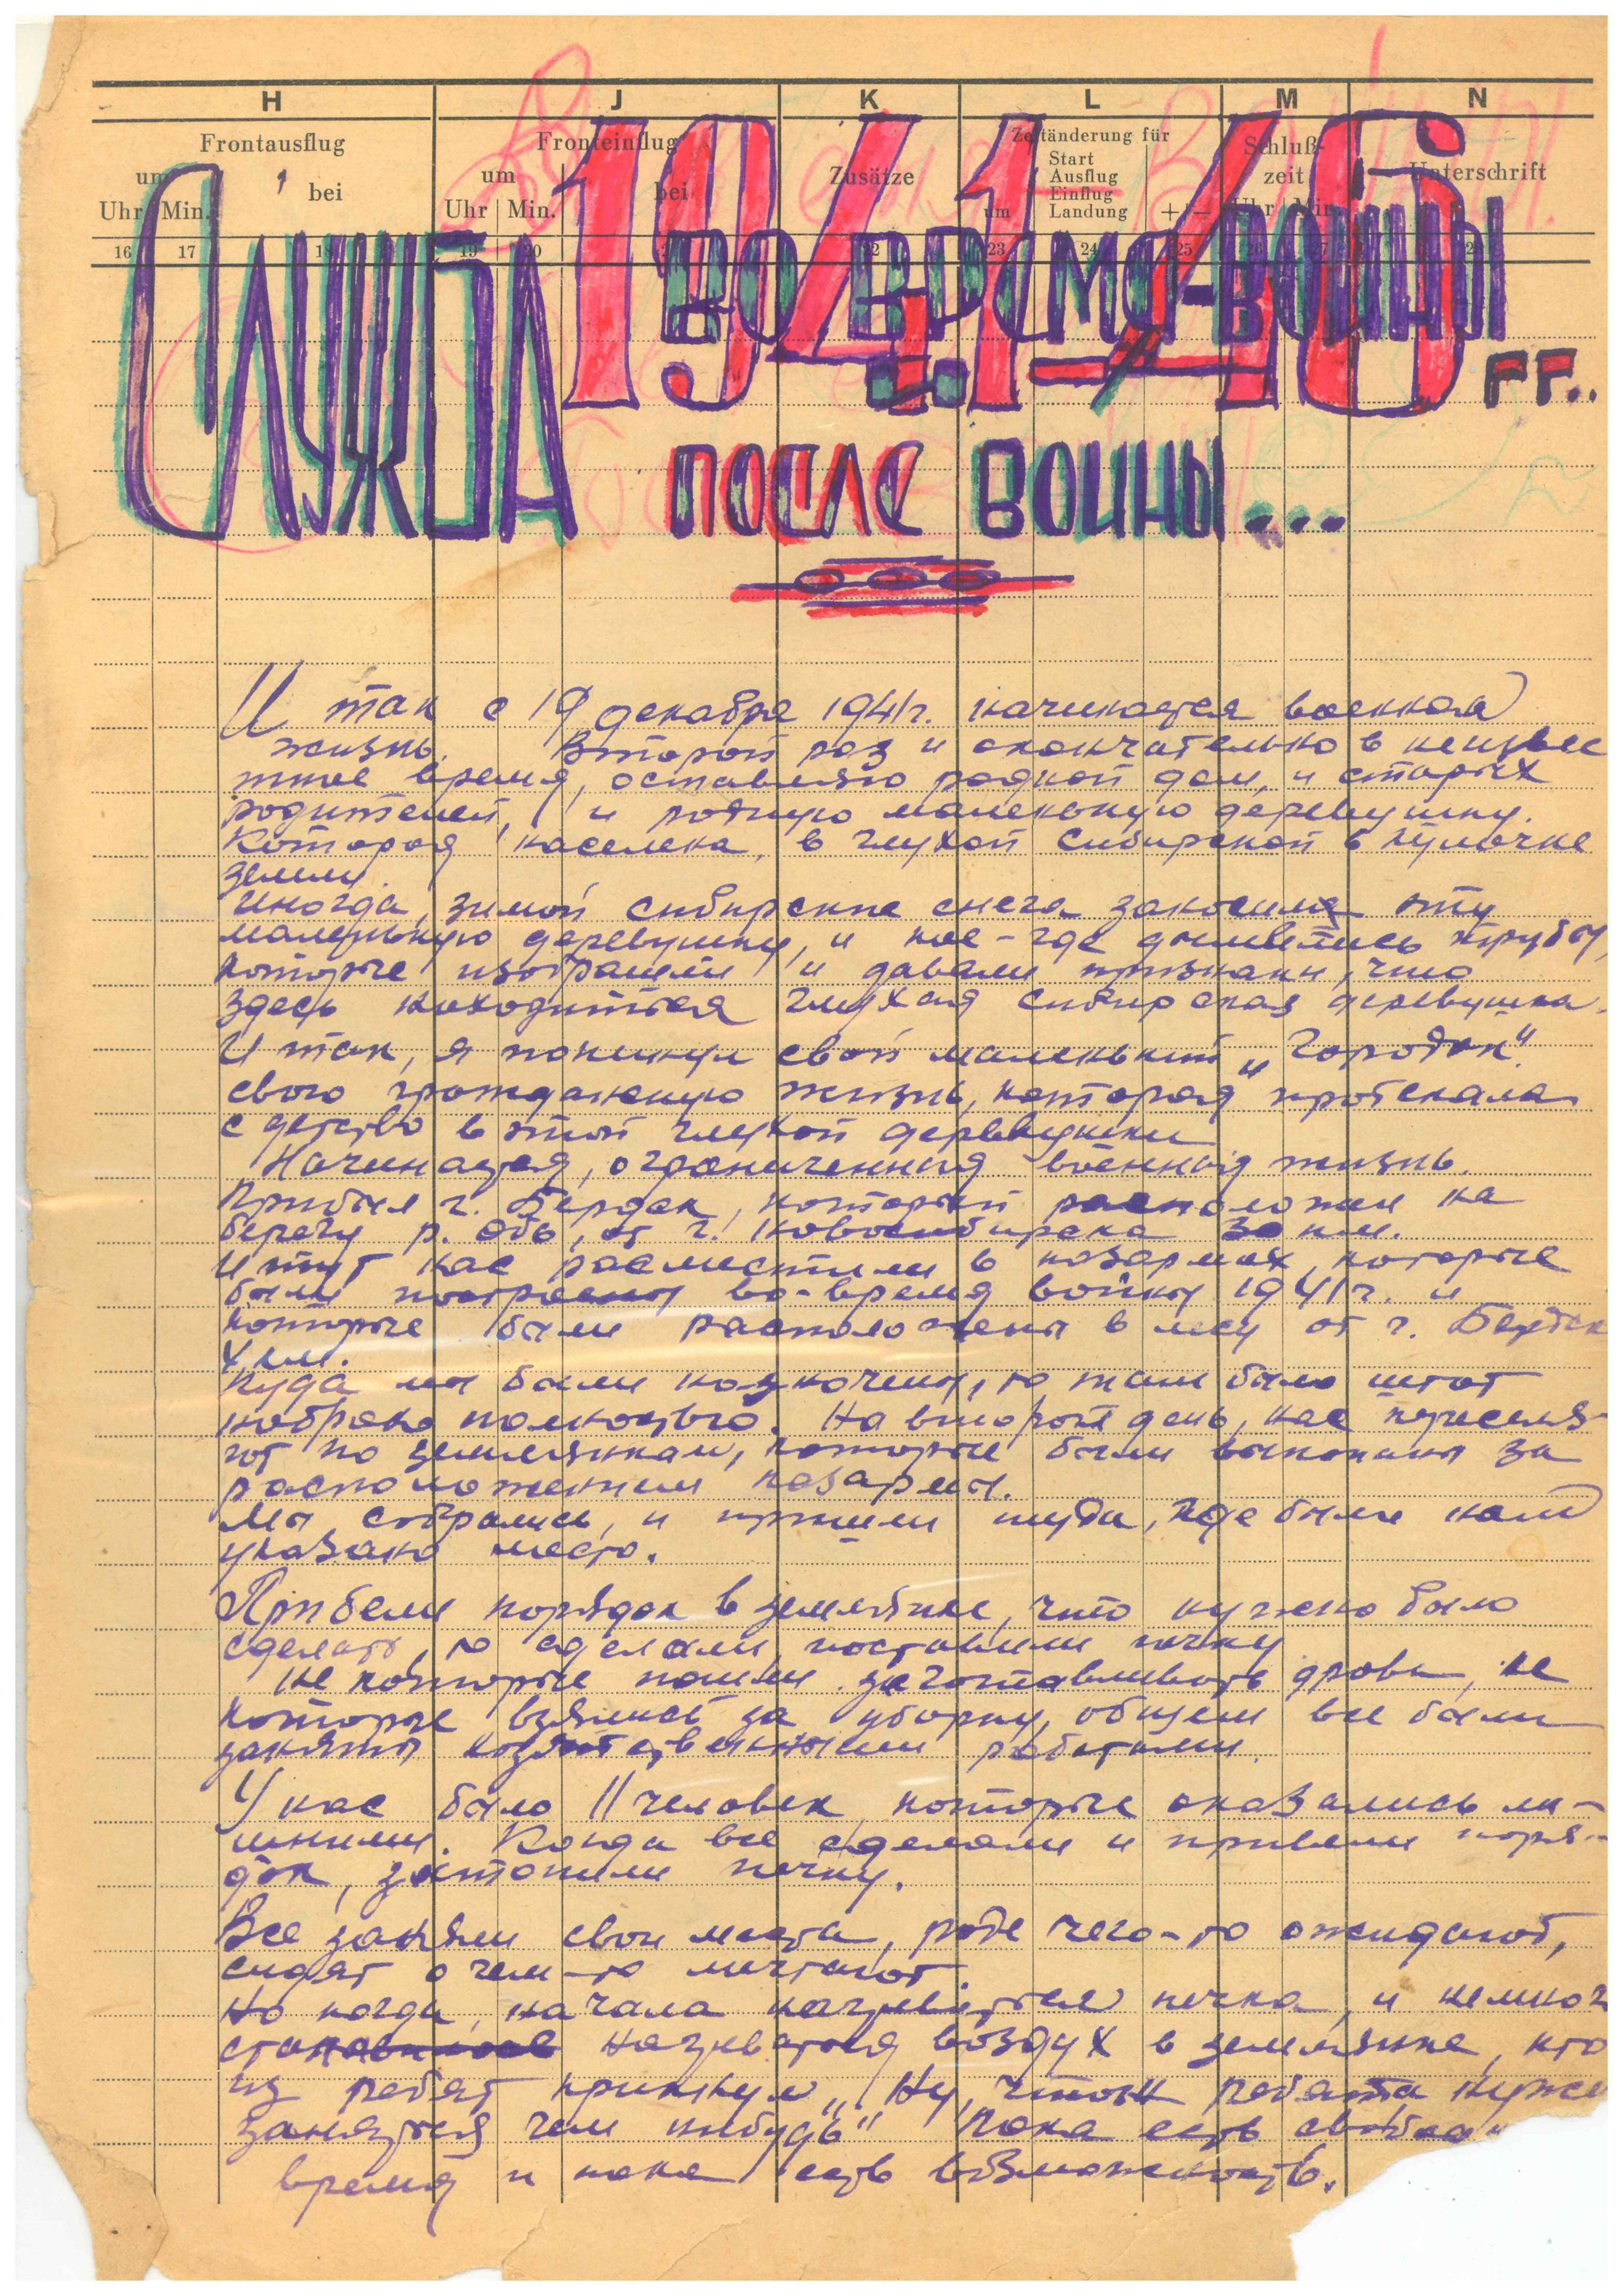 H J K L M N
Frontausflug Fronteinflug Zusätze Zeitänderung für Schluß- Unterschrift
um bei um bei Start zeit
Ausflug
Einflug
Uhr Min. Uhr Min. um Landung +/− Uhr Min.
16 17 18 19 20 22 23 24 25 26 27
1941-46 гг..
Служба во время войны
после войны...
И так с 19 декабря 1941г. начинается военная
жизнь. Второй раз и окончательно в неизвес
тное время, оставляю родной дом, и старых
родителей, и родную маленькую деревушку.
Которая населена, в глухой Сибирской в кулочке
земли.
Иногда, зимой сибирские снега заносили эту
маленькую деревушку, и кое-где дымились трубы,
которые изображали и давали признаки, что
здесь находиться глухая сибирская деревушка.
И так, я покинул свой маленький „Городок"
свою гражданскую жизнь, которая протекала
с детство в этой глухой деревушки
Начинается, ограниченная военная жизнь.
Прибыл г. Бердск, который расположен на
берегу р. Обь, от г. Новосибирска 30 км.
И тут нас разместили в казармах, которые
были построены во-время войны 1941г. и
которые были расположены в лесу от г. Бердск
4 км.
Куда мы были назначены, то там было штат
набрано полностью. На второй день, нас переселя-
ют по землянкам, которые были выкопаны за
расположением казармы.
Мы собрались, и пришли туда, где было нам
указано место.
Привели порядок в землянке, что нужно было
сделать, то сделали, поставили печку
Не которые пошли заготавливать дрова, не
которые взялись за уборку, общем все были
заняты хозяйственными работами.
У нас было 11 человек которые оказались ли-
шними. Когда все сделали и привели поря-
док, затопили печку.
Все заняли свои места, роде чего-то ожидают,
сидят о чем-то мечтают.
Но когда, начала нагреваться печка, и немног
нагреваться воздух в землянке, кто
из ребят крикнул „Ну, чтож ребята нужн
заняться чем нибудь" Пока есть свободн
время и пока есть возможность.